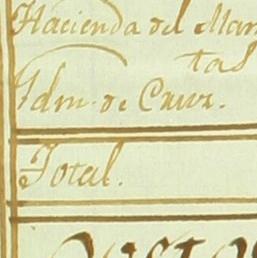 Hacienda del Mar
tas
Idm. de Cruz.
Total.